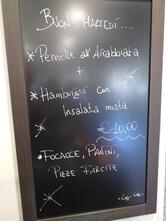 BUON MARTEDÌ ...
* Pennette all'Arrabbiata
+
* Hamburger con
Insalata mista
€ 10,00
• FOCACCE, PANINI,
PIZZE FARCITE